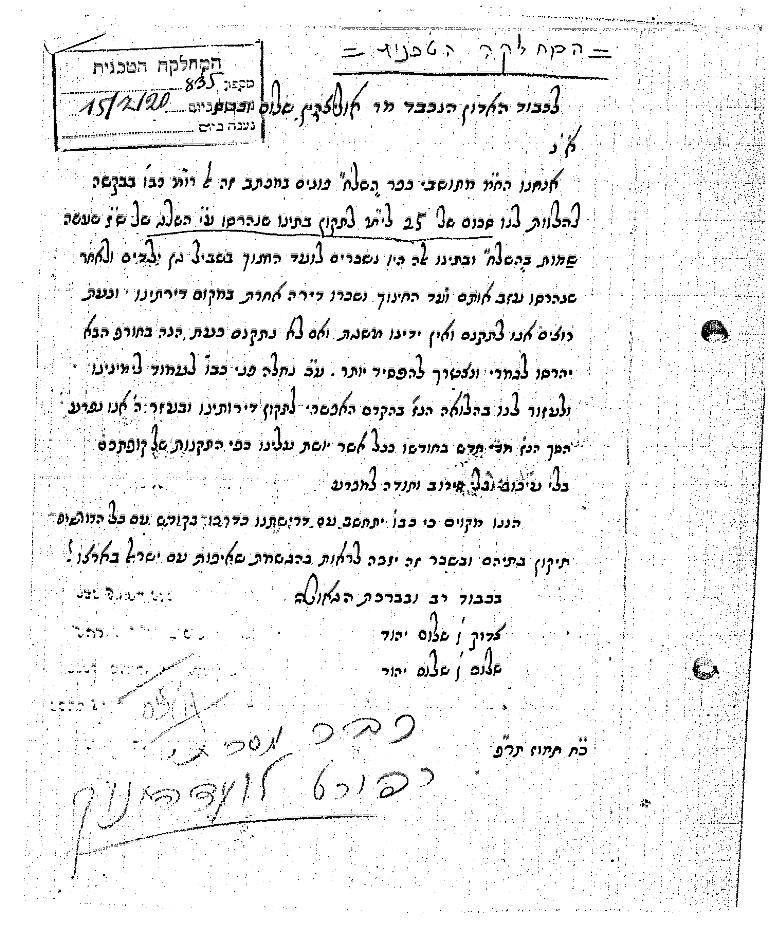 = המחלקה הטכנית =
המחלקה הטכנית
מספר 835
15/7/20
נענה ביום
לכבוד האדון הנכבד מר שלום וברכה
א״נ
אנחנו הח״מ מתושבי כפר השלח״ פונים במכתב זה אל כבו׳ בבקשה
להלוות לנו סכום של 25 לי״מ לתקון בתינו שנהרסו ע״י השלג של ש״ז שעשה
שמות בהשלח״ ובתינו אלה היו נשכרים לועד החנוך בשביל גן ילדים ולאחר
שנהרסו עזב אותם ועד החינוך ושכרו דירה אחרת במקום דירתינו וכעת
רוצים אנו לתקנם ואין ידינו משגת ואם לא נתקנם כעת הנה בחורף הבא
יהרסו לגמרי ונצטרך להפסיד יותר. ע״כ נחלה פני כבו׳ לעמוד לימינינו
ולעזור לנו בהלואה הנ״ז בהקדם האפשרי לתקון דירותינו ובעזר ה׳ אנו נפרע
הסך הנ״ז מדי חדש בחודשו ככל אשר יושת עלינו כפי התקנות של קופתכם
בלי עיכוב ובלי סירוב ותודה למפרע
הננו מקוים כי כבו׳ יתחשב עם דרישתנו כדרכו בקודש עם כל הדורשים
תיקון בתיהם ובשכר זה יזכה לראות בהגשמת שאיפות עם ישראל בארצו!
בכבוד רב ובברכת הגאולה
צדוק ן׳ שלום יהוד
שלום ן׳ שלום יהוד
כ״ח תמוז תר״פ
כבר מסרתי
רפורט לועד החנוך